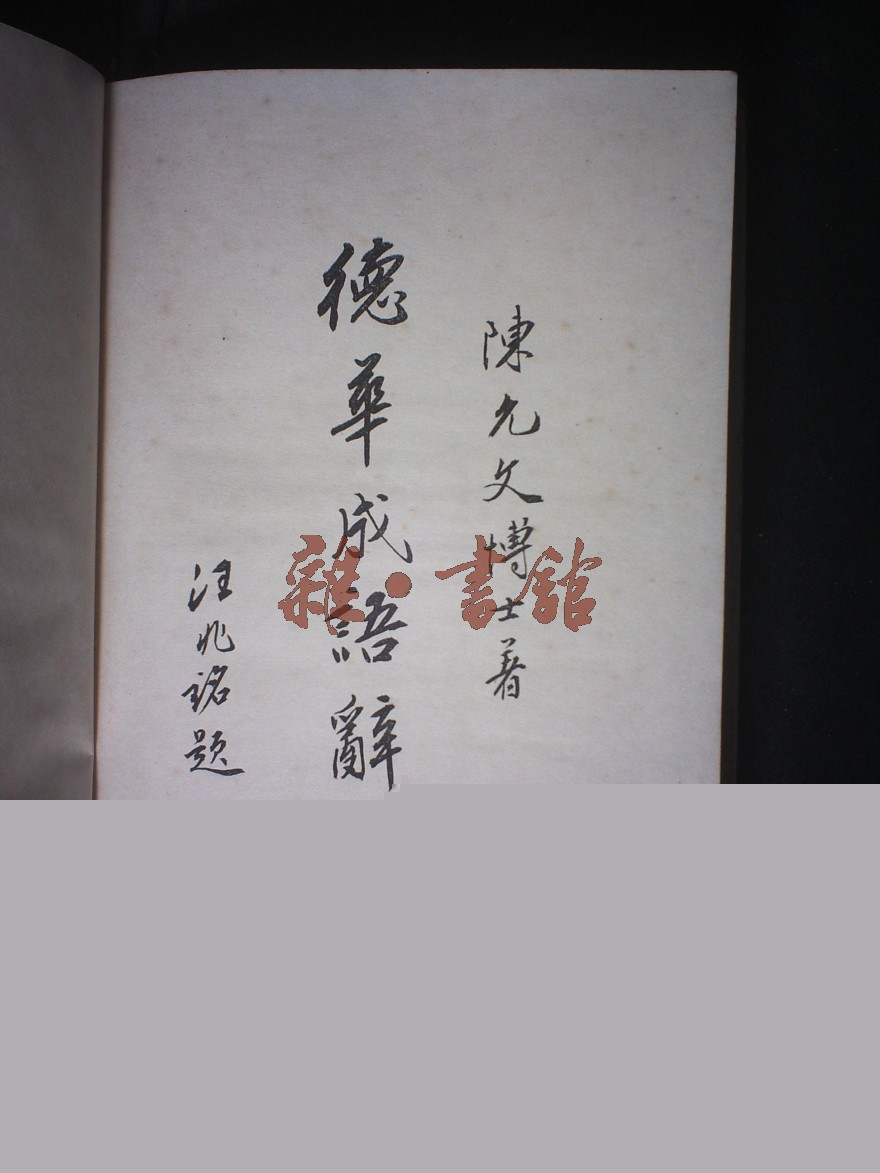 陳允文博士著
德華成語辭
汪兆銘題
雜·書館